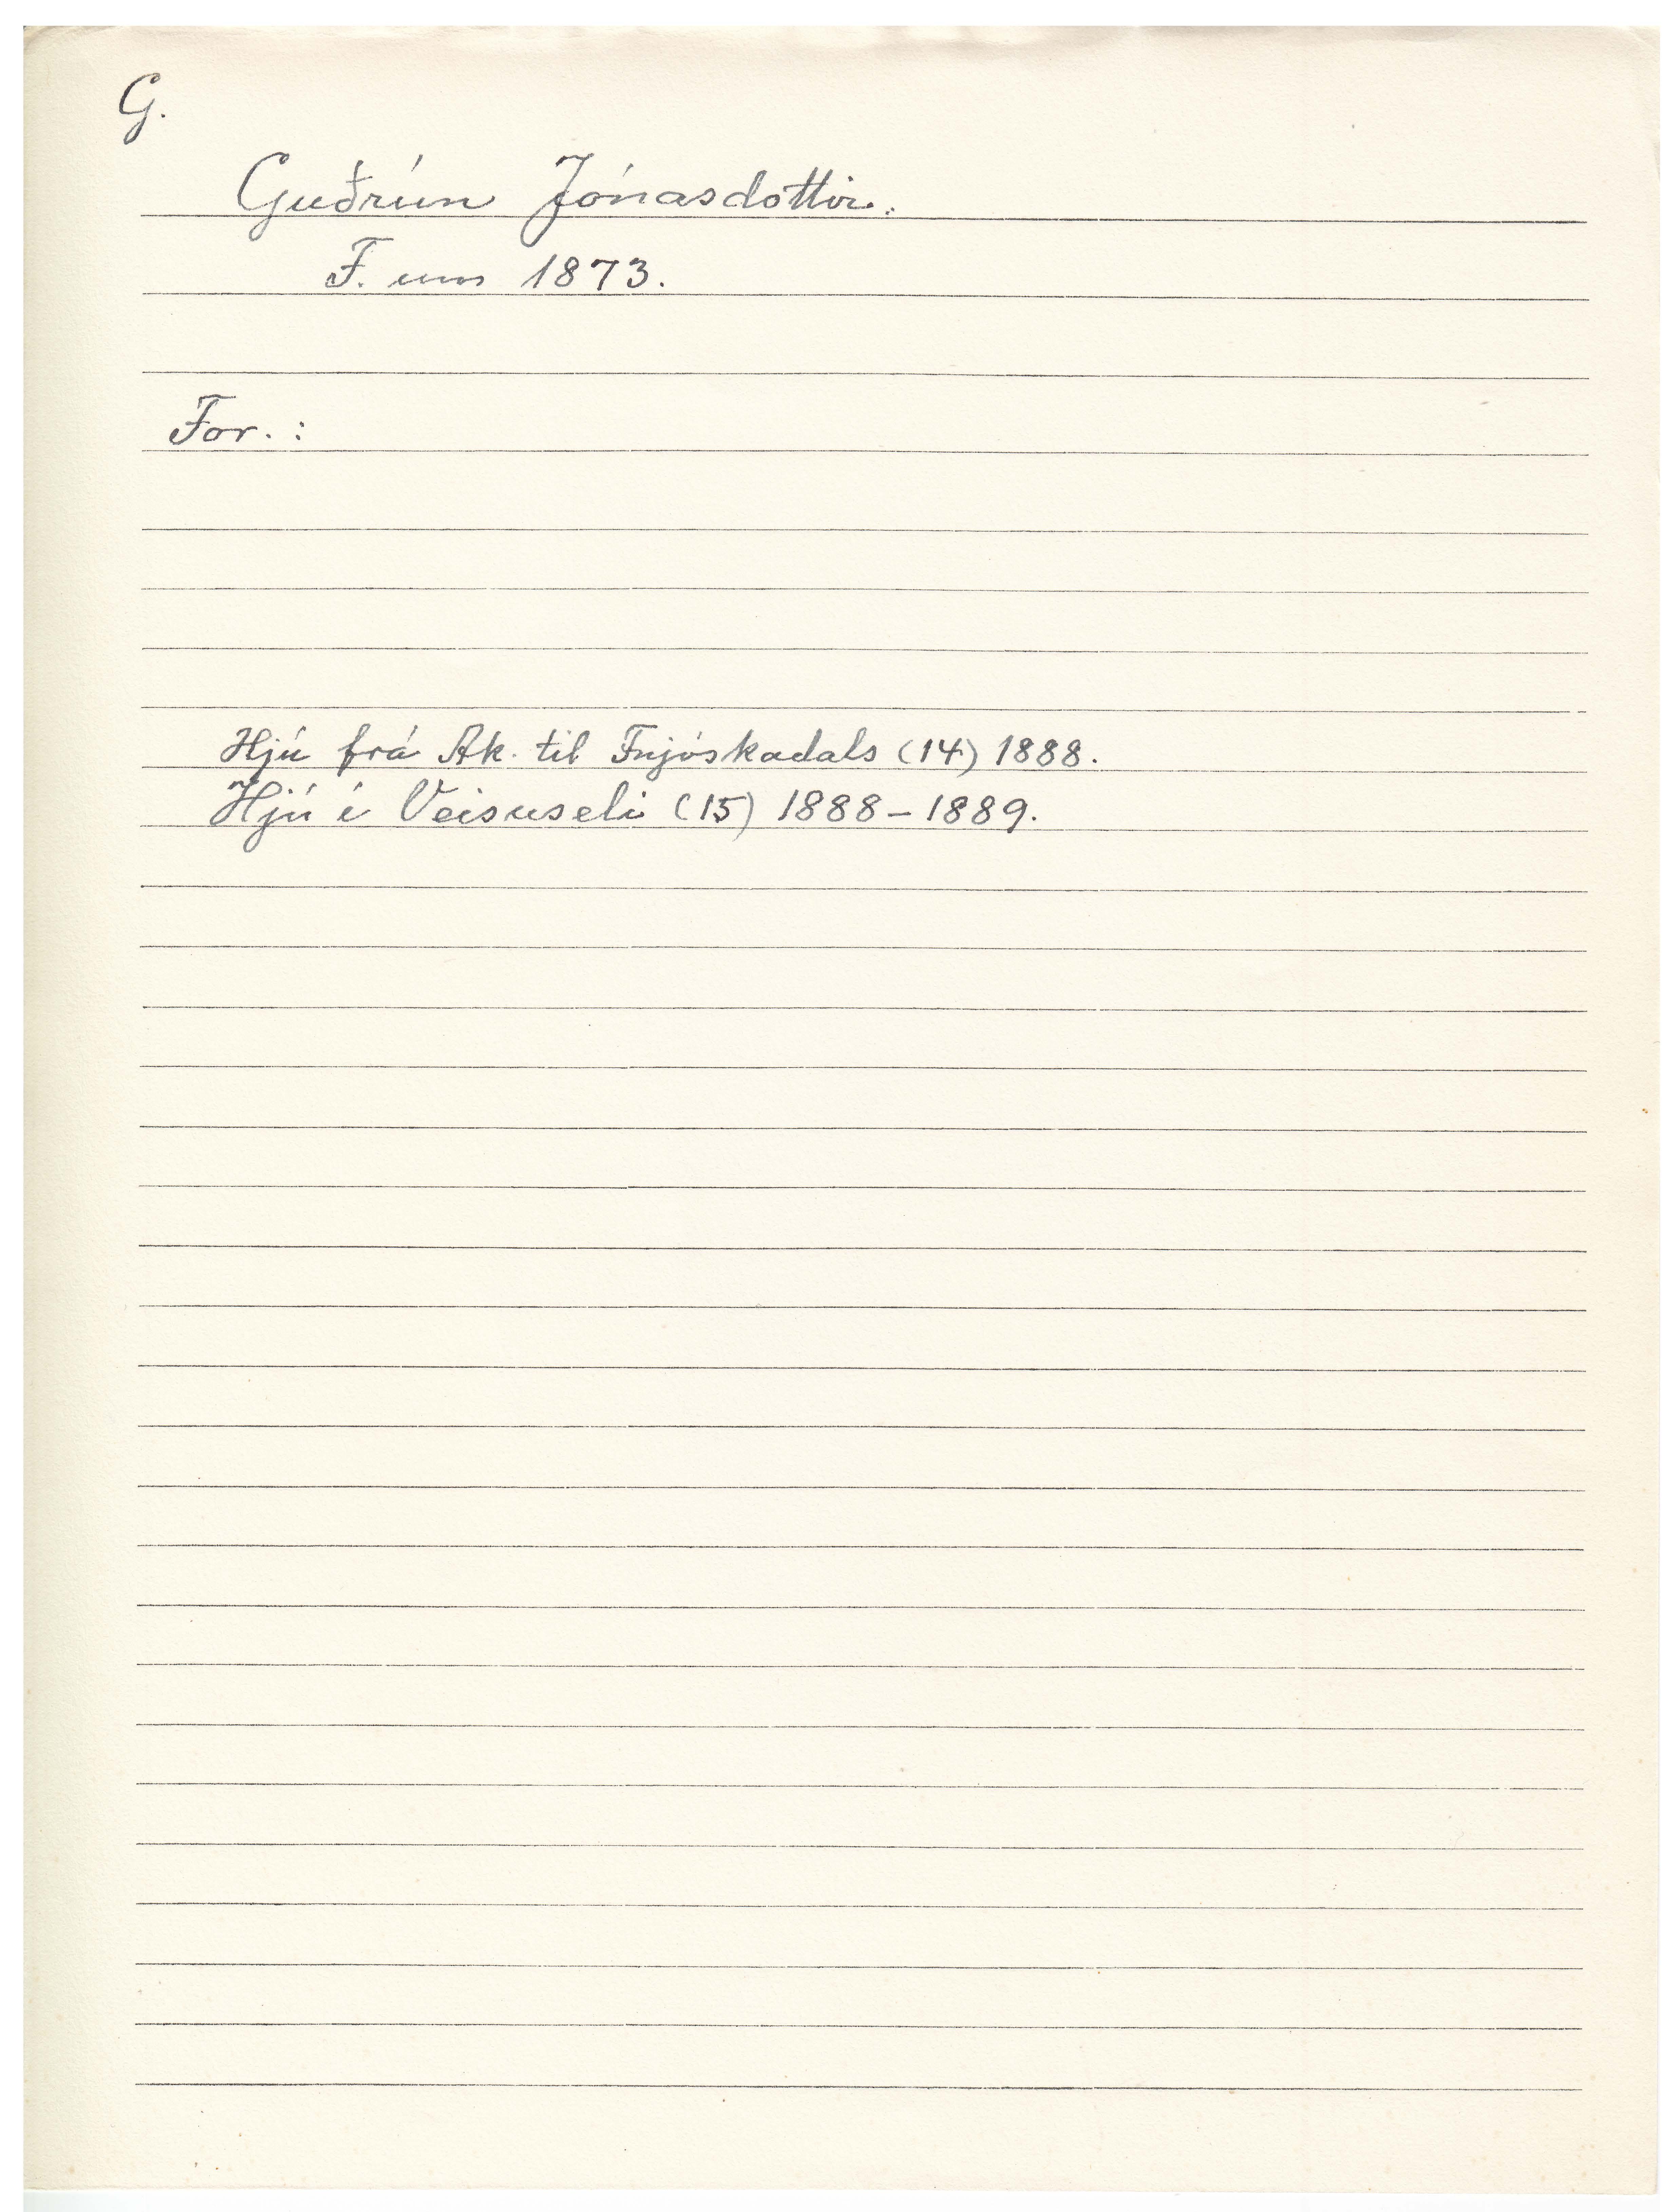 G.
Guðrún Jónasdóttir.
F. um 1873.
For. :
Hjú frá Ak. til Fnjóskadals (14) 1888.
Hjú í Veisuseli (15) 1888-1889.